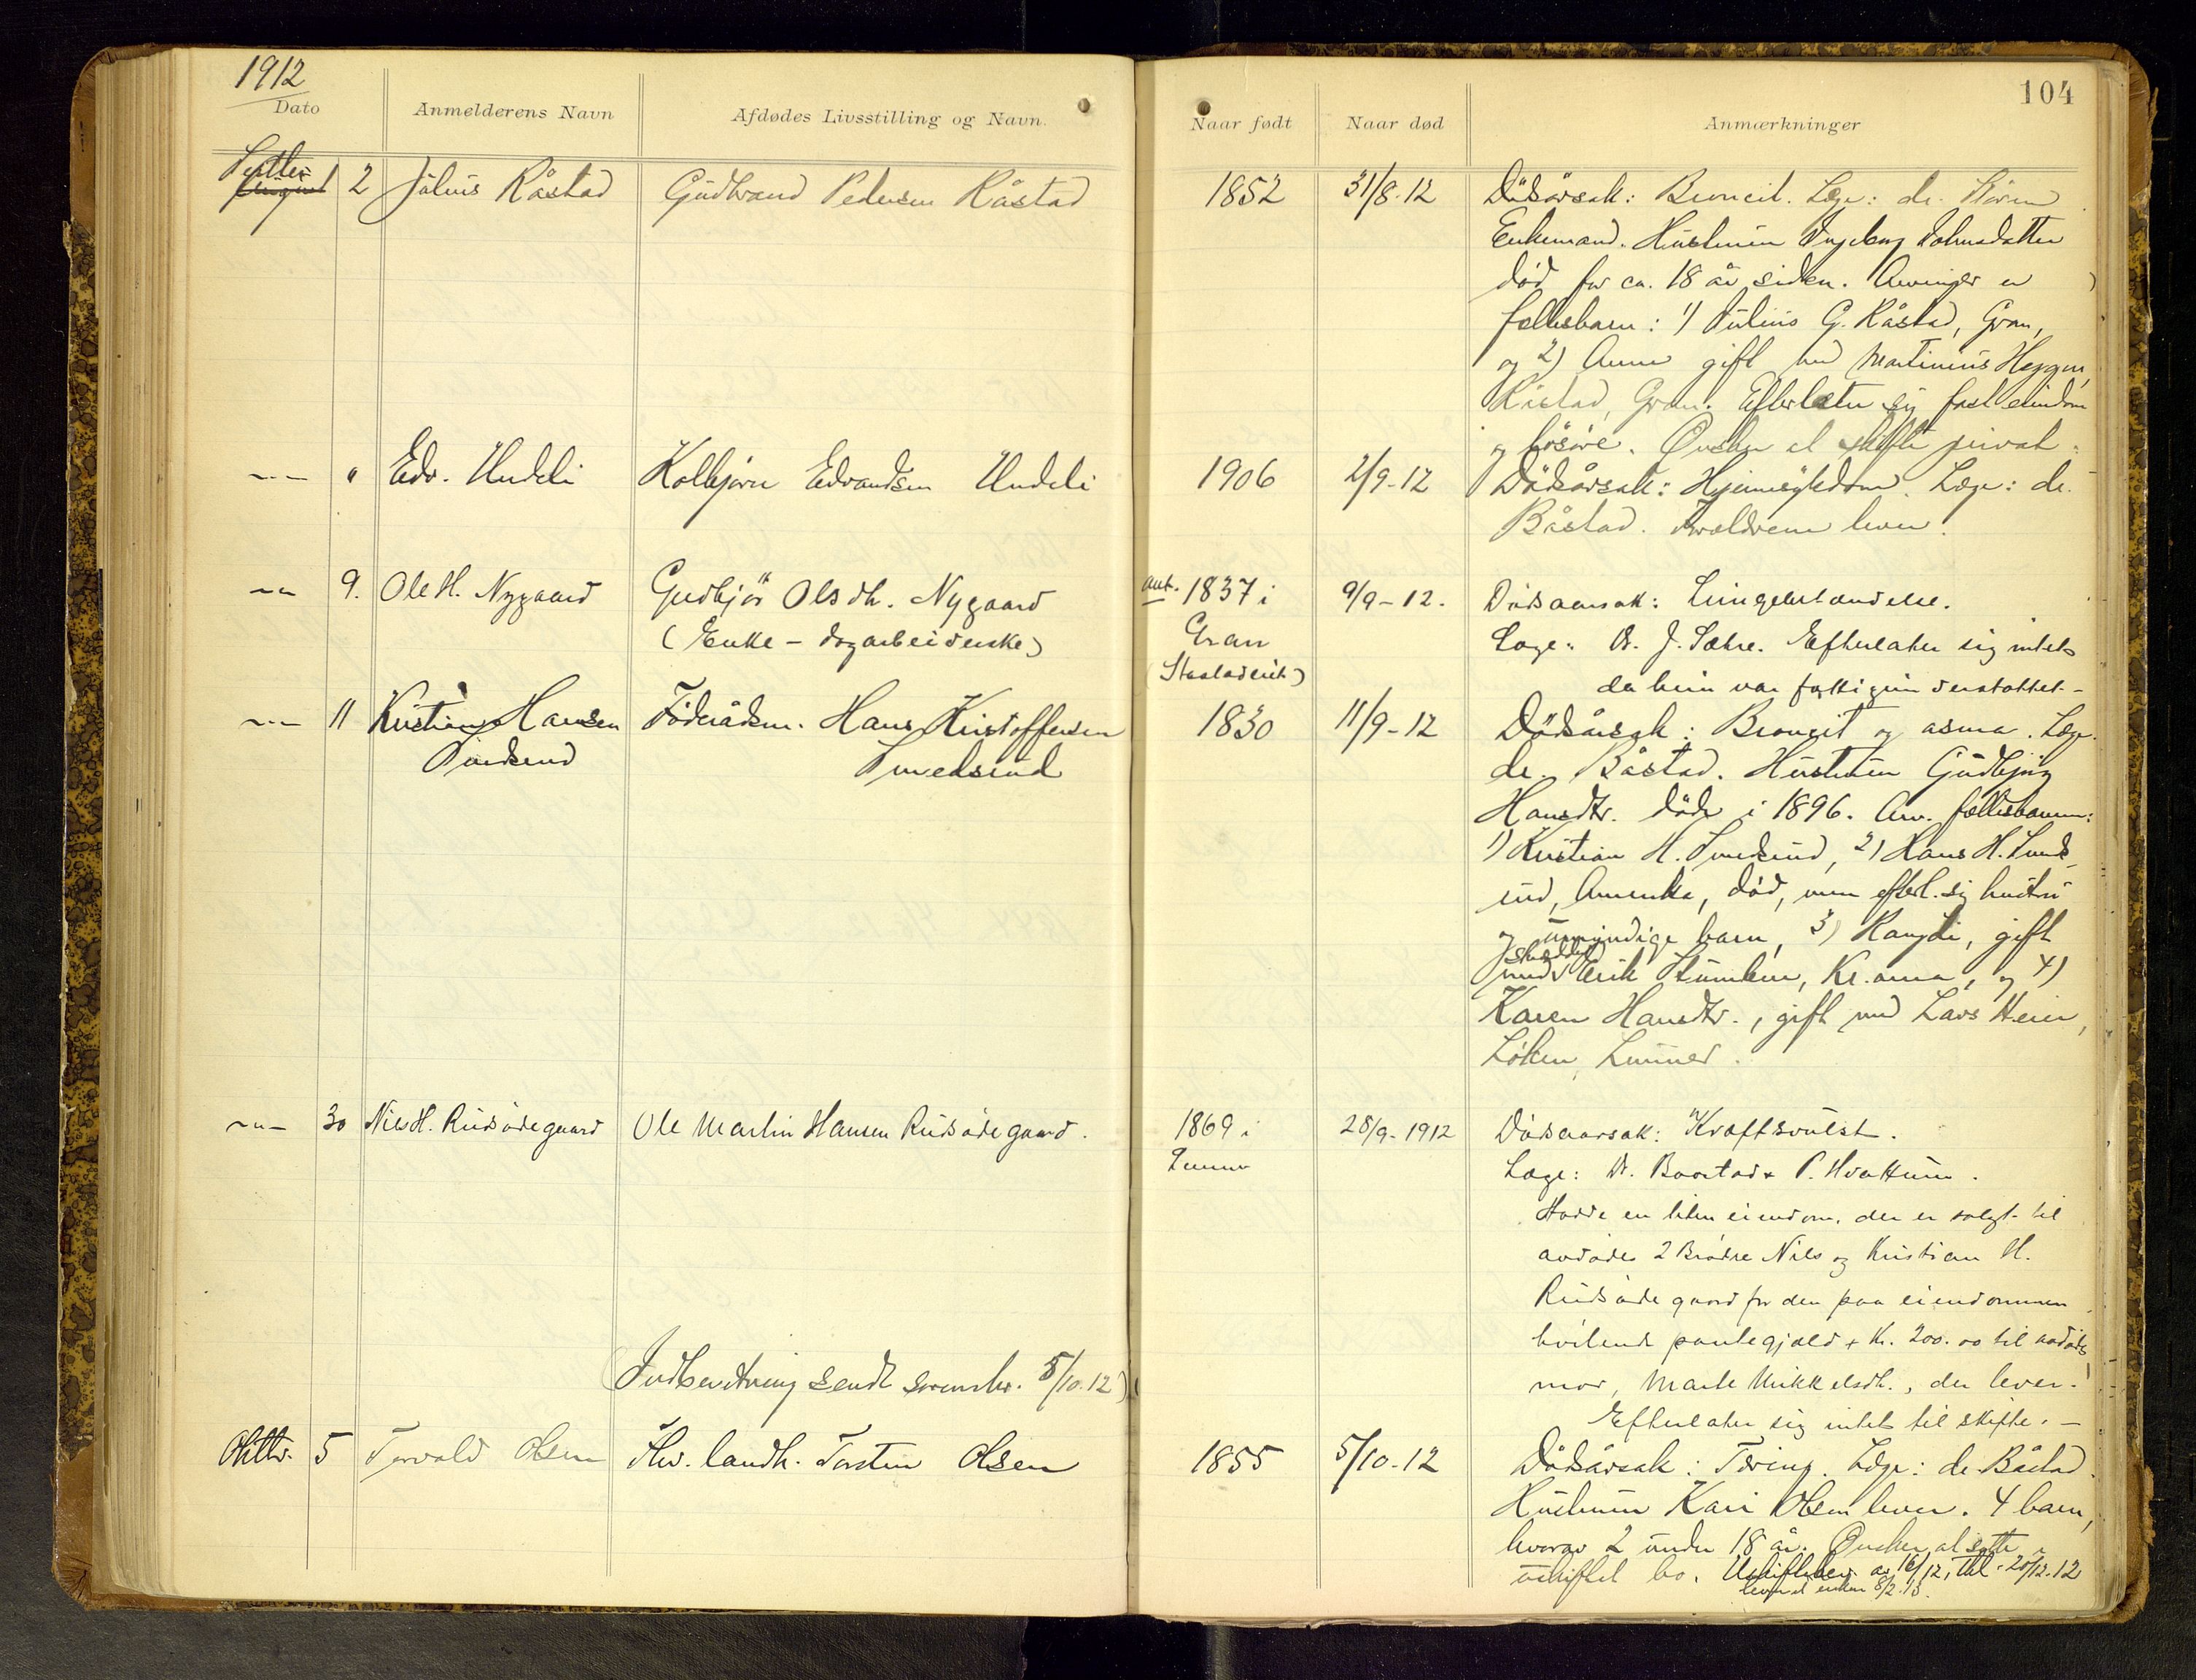 1912
104
Dato
Anmelderens Navn
Afdødes Livsstilling og Navn.
Naar født
Naar død
Anmærkninger
Septbr.
August 2 Julius Råstad Gudbrand Pedersen Råstad 1852 31/8.12 Dödsårsak: Broncit. Læge: dr.
Enkemand. Hustruen Ingeborg Johnsdatter
död for ca. 18 år siden. Arvinger er
fællesbarn: 1) Julius G. Råstad, Gran,
og 2) Anne gift med Martinius Heggen,
Råstad, Gran. Efterlater sig fast eiendom
og lösöre. Önsker at skifte privat.
-"- " Edv. Undeli Kolbjörn Edvardsen Undeli 1906 2/9-12 Dödsårsak: Hjernesykdom. Læge: dr.
Båstad. Forældrene lever.
-"- 9. Ole H. Nygaard Gudbjör Olsdtr. Nygaard ant. 1837 i 9/9-12. Dødsaarsak: Lungebetændelse.
(Enke - dagarbeiderske) Gran Læge: Dr. J. Sæhre. Efterlater sig intet
da hun var fattigunderstøttet.-
-"- 11 Kristian Hansen Föderådsm. Hans Kristoffersen 1830 11/9-12 Dödsårsak: Broncit og asma. Læge
Smedsrud Smedsrud dr. Båstad. Hustruen Gudbjörg
Hansdtr. döde i 1896. Arv. fællesbarn:
1) Kristian H. Smedsrud, 2) Hans H. Smeds-
rud, Amerika, död, men efterl. sig hustru
og umyndige barn, 3) Rangdi, gift
med Erik, Kr.ania, og 4)
Karen Hansdtr., gift med Lars Heier,
Löken, Lunner.
-"- 30 Nils H. Rudsødegaard Ole Martin Hansen Rudsødegaard. 1869 i 28/9-1912 Dødsaarsak: Kræftsvulst.
Lunner Læge: Dr. Baastad & P. Hvattum.
Hadde en liten eiendom, der er solgt til
avdødes 2 Brødre Nils og Kristian H.
Rudsødegaard for den paa eiendommen
hvilende pantegjæld + Kr. 200.00 til avdødes
(Indberetning sendt sorenskr. 5/10.12) mor, Marte Mikkelsdtr., der lever.
Efterlater sig intet til skifte.-
Oktbr. 5 Torvald Olsen Fhv. landh. Torsten Olsen 1855 5/10-12 Dödsårsak: Tæring. Læge: dr. Båstad.
Hustruen Kari Olsen lever. 4 barn,
hvorav 2 under 18 år. Önsker at sitte
uskiftet bo. Uskiftebev. av 16/12, thl. 20/12.12
levert enken 8/2.13.